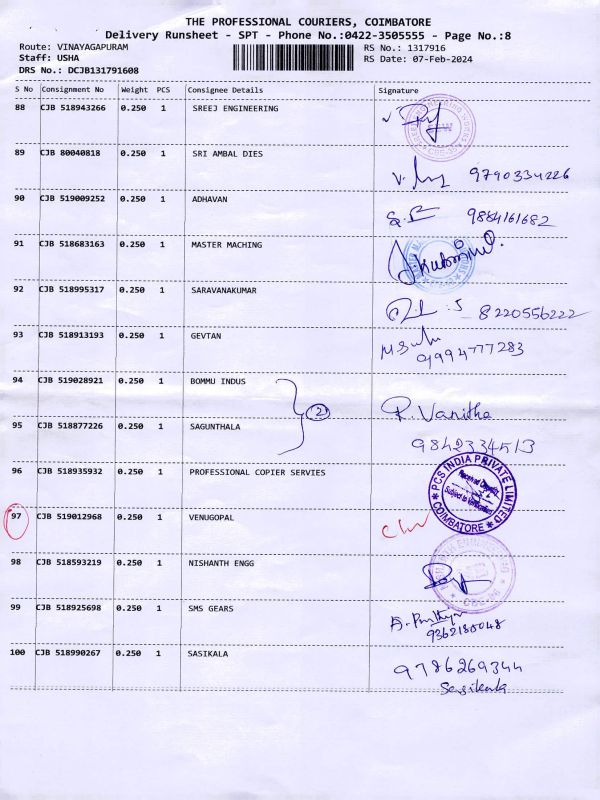 THE PROFESSIONAL COURIERS, COIMBATORE
Delivery Runsheet - SPT - Phone No.:0422-3505555 - Page No.:8
Route: VINAYAGAPURAM RS No.: 1317916
Staff: USHA RS Date: 07-Feb-2024
DRS No.: DCJB131791608
S No Consignment No Weight PCS Consignee Details Signature
88 CJB 518943266 0.250 1 SREEJ ENGINEERING
89 CJB 80040818 0.250 1 SRI AMBAL DIES
9790334226
90 CJB 519009252 0.250 1 ADHAVAN
9884161682
91 CJB 518683163 0.250 1 MASTER MACHING
92 CJB 518995317 0.250 1 SARAVANAKUMAR
8220556222
93 CJB 518913193 0.250 1 GEVTAN
9994777283
94 CJB 519028921 0.250 1 BOMMU INDUS
2 P. Vanitha
95 CJB 518877226 0.250 1 SAGUNTHALA
9842334513
96 CJB 518935932 0.250 1 PROFESSIONAL COPIER SERVIES
PCS INDIA PRIVATE LIMITED
COIMBATORE
97 CJB 519012968 0.250 1 VENUGOPAL
98 CJB 518593219 0.250 1 NISHANTH ENGG
99 CJB 518925698 0.250 1 SMS GEARS
9362180048
100 CJB 518990267 0.250 1 SASIKALA
9786269344
Sasikala